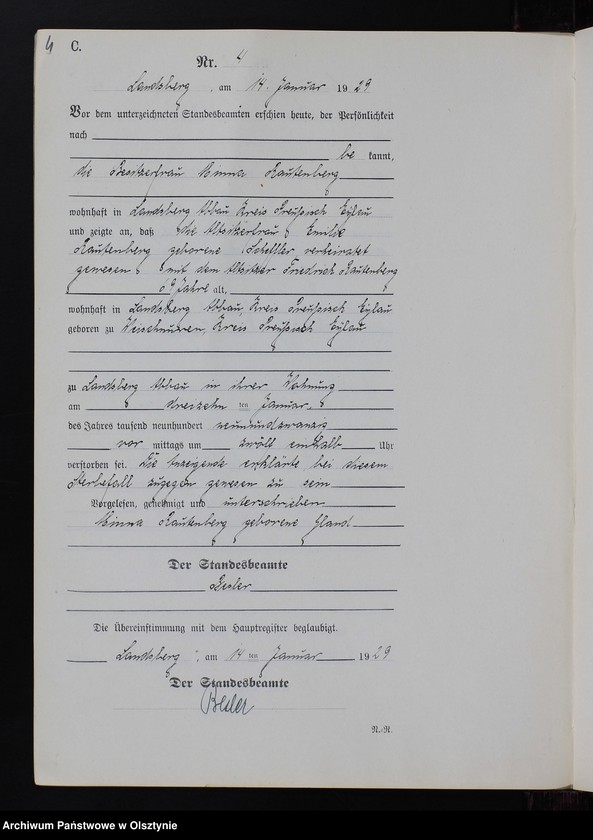 4
C.
Nr. 4
Landsberg, am 14. Januar 1929
Vor dem unterzeichneten Standesbeamten erschien heute, der Persönlichkeit
nach
be kannt,
die Besitzerfrau Minna Rautenberg
wohnhaft in Landsberg Abbau Kreis Preußisch Eylau
und zeigte an, daß die Altsitzerfrau Emilie
Rautenberg geborene Scheffler verheiratet
gewesen mit dem Altsitzer Friedrich Rautenberg
Jahre alt,
wohnhaft in Landsberg Abbau, Kreis Preußisch Eylau
geboren zu Kreis Preußisch Eylau
zu Landsberg Abbau in ihrer Wohnung
am dreizehn ten Januar
des Jahres tausend neunhundert neunundzwanzig
vor mittags um zwölf einhalb Uhr
verstorben sei. Die Anzeigende erklärte bei diesem
Sterbefall zugegen gewesen zu sein
Vorgelesen, genehmigt und unterschrieben
Minna Rautenberg geborene
Der Standesbeamte
Besler
Die Übereinstimmung mit dem Hauptregister beglaubigt.
Landsberg, am 14 ten Januar 1929
Der Standesbeamte
Besler
N.-R.
Archiwum Państwowe w Olsztynie